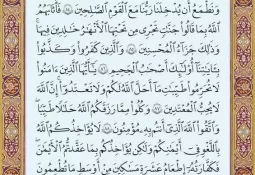 وَنَطْمَعُ أَن يُدْخِلَنَا رَبُّنَا مَعَ ٱلْقَوْمِ ٱلصَّٰلِحِينَ ٨٤ فَأَثَٰبَهُمُ
ٱللَّهُ بِمَا قَالُوا۟ جَنَّٰتٍ تَجْرِى مِن تَحْتِهَا ٱلْأَنْهَٰرُ خَٰلِدِينَ فِيهَا
وَذَٰلِكَ جَزَآءُ ٱلْمُحْسِنِينَ ٨٥ وَٱلَّذِينَ كَفَرُوا۟ وَكَذَّبُوا۟
بِـَٔايَٰتِنَآ أُو۟لَٰٓئِكَ أَصْحَٰبُ ٱلْجَحِيمِ ٨٦ يَٰٓأَيُّهَا ٱلَّذِينَ ءَامَنُوا۟
لَا تُحَرِّمُوا۟ طَيِّبَٰتِ مَآ أَحَلَّ ٱللَّهُ لَكُمْ وَلَا تَعْتَدُوٓا۟ إِنَّ ٱللَّهَ
لَا يُحِبُّ ٱلْمُعْتَدِينَ ٨٧ وَكُلُوا۟ مِمَّا رَزَقَكُمُ ٱللَّهُ حَلَٰلًا طَيِّبًا
وَٱتَّقُوا۟ ٱللَّهَ ٱلَّذِىٓ أَنتُم بِهِۦ مُؤْمِنُونَ ٨٨ لَا يُؤَاخِذُكُمُ ٱللَّهُ
بِٱللَّغْوِ فِىٓ أَيْمَٰنِكُمْ وَلَٰكِن يُؤَاخِذُكُم بِمَا عَقَّدتُّمُ ٱلْأَيْمَٰنَ
فَكَفَّٰرَتُهُۥٓ إِطْعَامُ عَشَرَةِ مَسَٰكِينَ مِنْ أَوْسَطِ مَا تُطْعِمُونَ